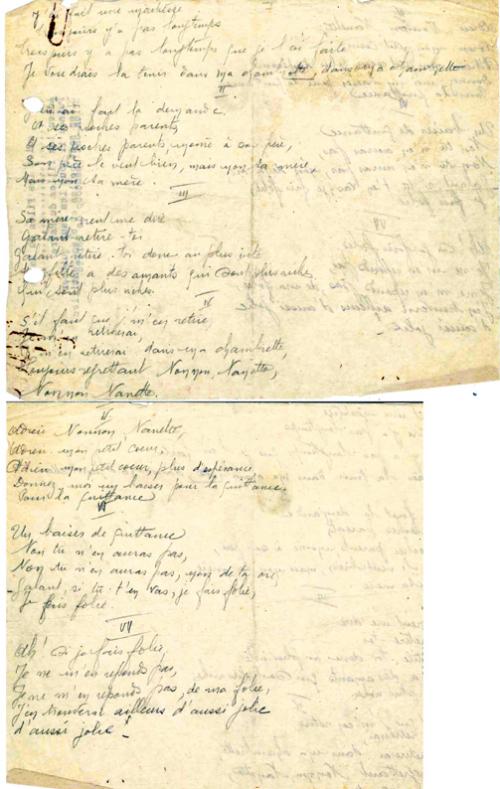 J'ai fait une maîtresse
Toujours y a pas longtemps
Toujours y a pas longtemps que je l'ai faite
Je voudrais la tenir dans ma chambrette, dans ma chambrette
II
J'en ai fait la demande
A ses pauvres parents
A ses pauvres parents, même à son père,
Son père le veut bien, mais non sa mère
Mais non sa mère.
III
Sa mère vient me dire
Galant retire-toi
Galant retire-toi donc au plus vite
Ma fille a des amants qui sont plus riches
Qui sont plus riches.
IV
S'il faut que j' m'en retire
retirerai
Je m'en retirerai dans ma chambrette,
Toujours regrettant Nonnon, Nanette,
Nonnon Nanette.
V
Adieu Nonnon Nanette,
Adieu mon petit coeur,
Adieu mon petit coeur, plus d'espérance,
Donnez-moi un baiser pour la quittance,
Pour la quittance
VI
Un baiser de quittance
Non tu n'en auras pas,
Non tu n'en auras pas, non de ta vie,
Galant, si tu t'en vas, je fais folie,
Je fais folie.
VII
Ah! Si je fais folie,
Je ne m'en reponds pas,
Je ne m'en reponds pas, de ma folie,
J'en trouverai ailleurs d'aussi jolie
d'aussi jolie -